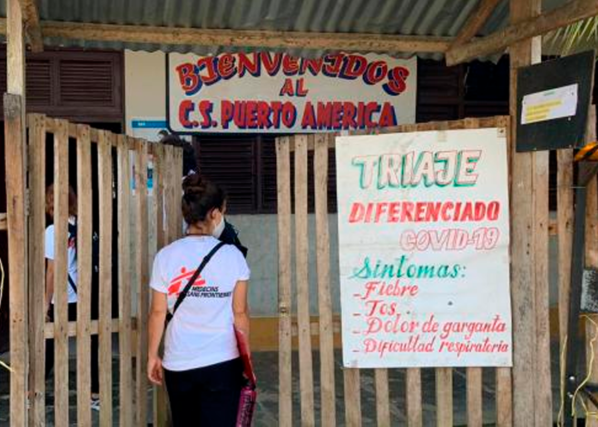 BIENVENIDOS
AL
C.S. PUERTO AMERICA
TRIAJE
DIFERENCIADO
COVID-19
Sintomas:
- Fiebre
- Tos
- Dolor de garganta
- Dificultad respiratoria
MEDECINS
SANS FRONTIERES